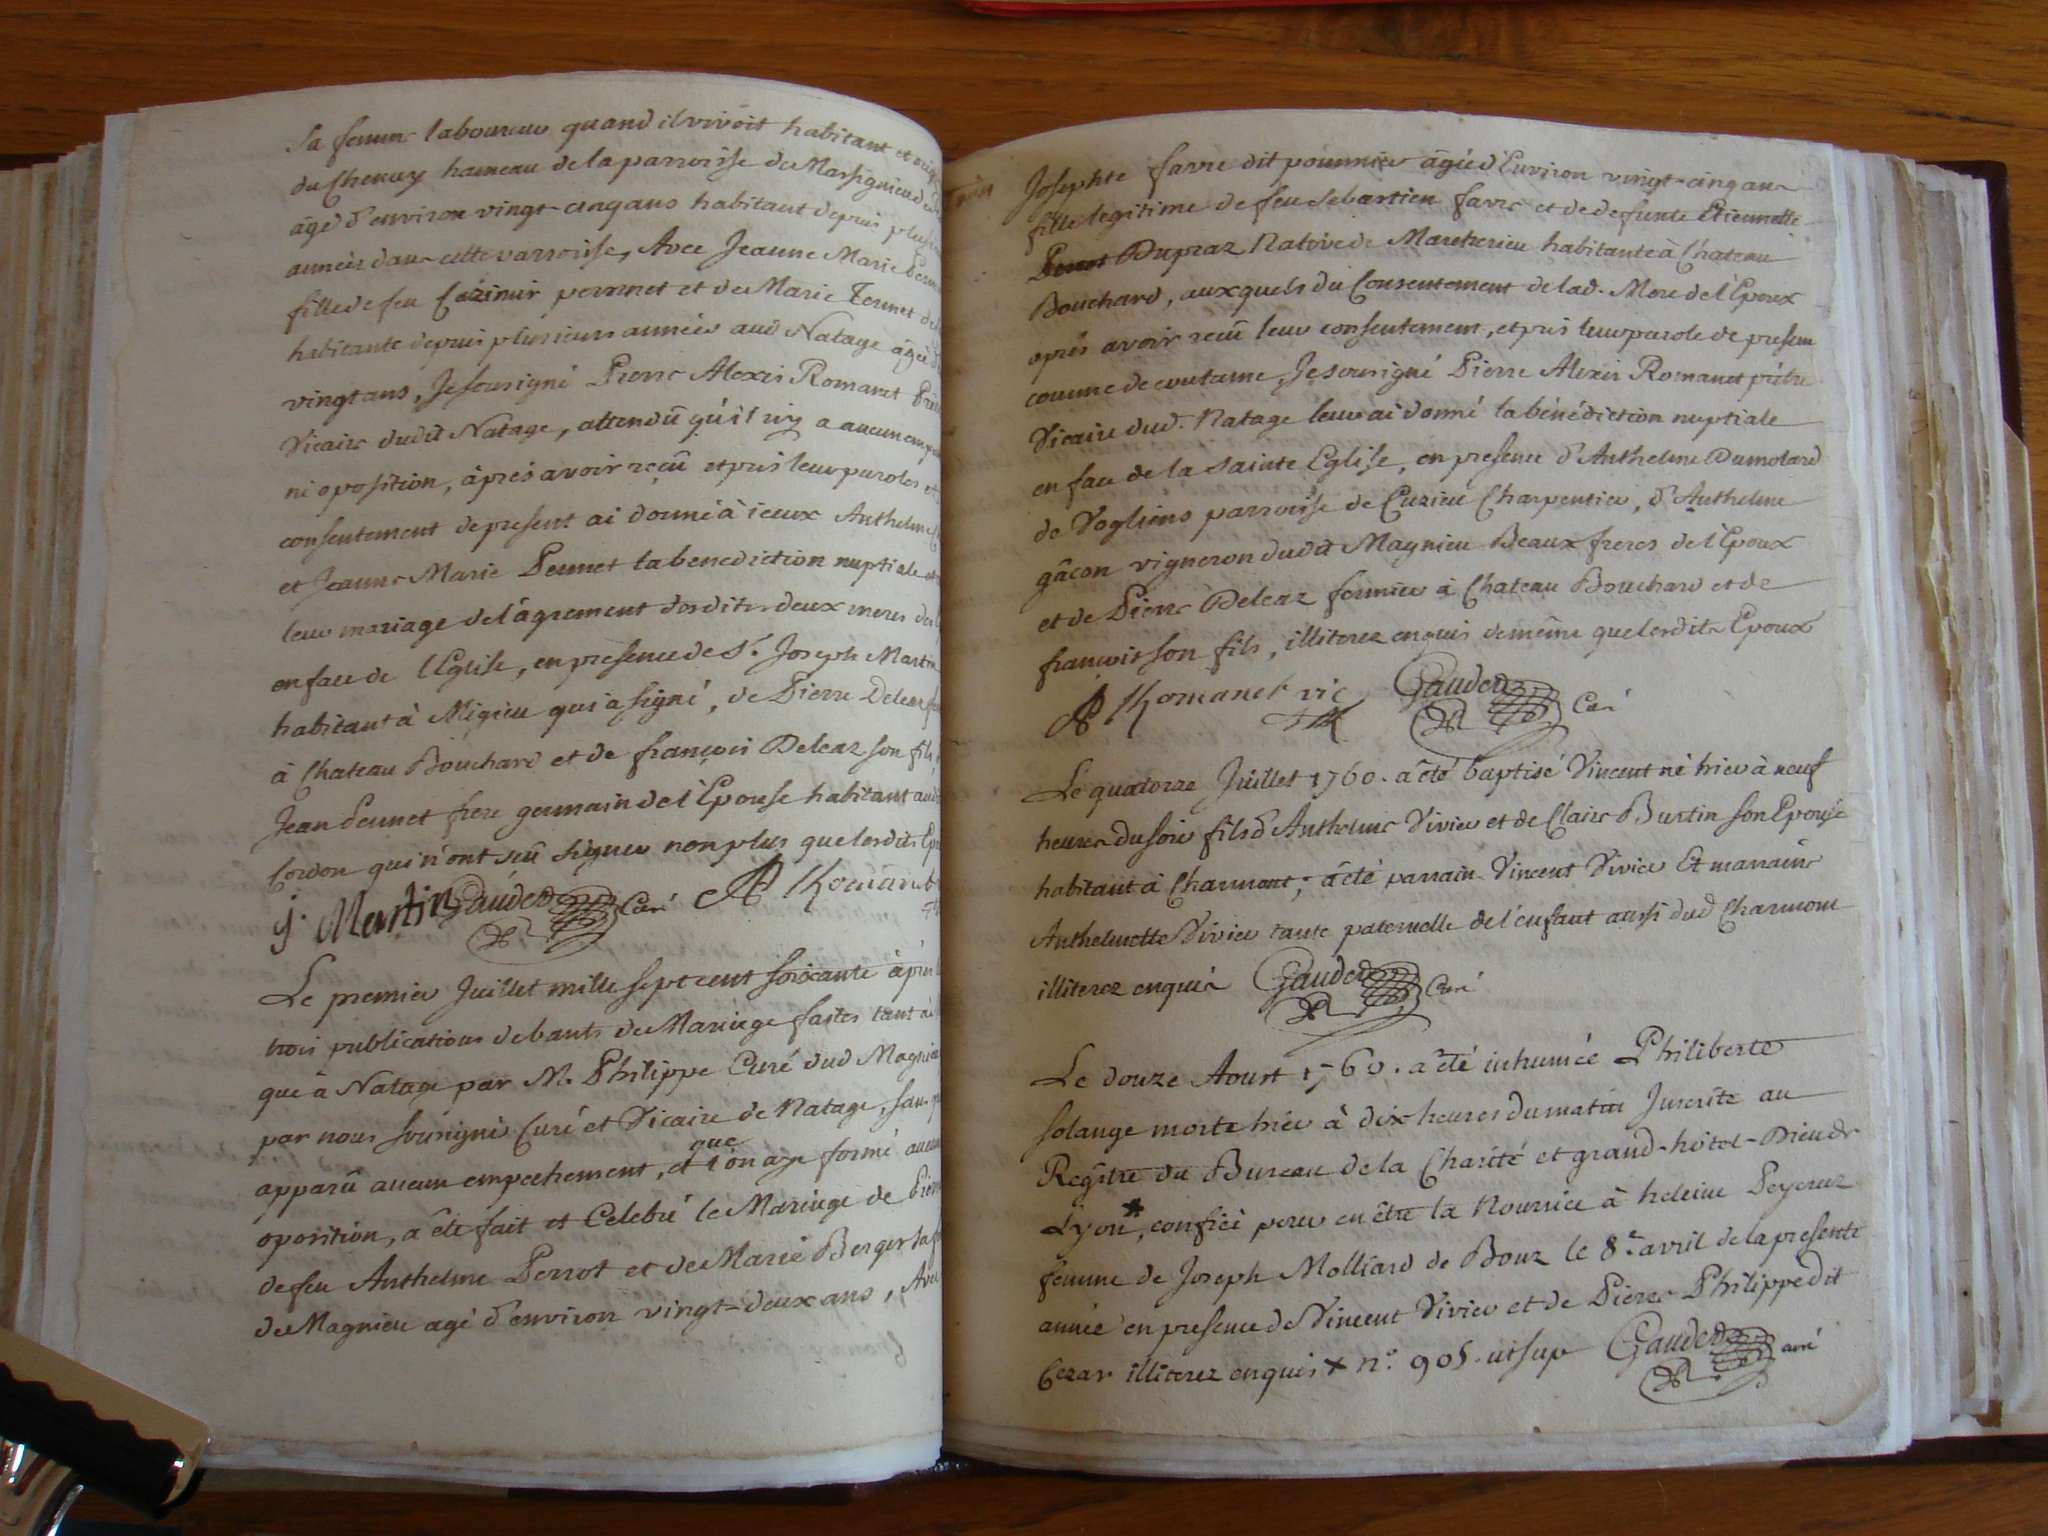 sa femme laboureur quand il vivoit habitant et
du Chemey hameau de la parroisse de Massignieu de
âgé d'environ vingt-cinq ans habitant depuis
années dans cette parroisse, Avec Jeanne Marie
fille de feu Cazimir perrnnet et de Marie Tennet
habitante depuis plusieurs années aud Natage âgée
vingt ans, Je soussigné Pierre Alexis Romanet
Vicaire dudit Natage, attendû qu'il n'y a aucun
ni oposition, àprés avoir reçû et pris leur paroles et
consentement de present ai donné à iceux Anthelme
et Jeanne Marie Pennet la benediction nuptiale
leur mariage de l'àgrement desdites deux meres
en face de l'Eglise, en presence de Sr. Joseph Martin
habitant à Migieu qui à signé, de Pierre Deleaz
à Chateau Bouchard et de françois Deleaz son fils,
Jean Pennet frere germain de l'Epouse habitant
Cordon qui n'ont scû signer non plus que lesdits
J. Martin Gaudet Curé AP Romanet
Le premier Juillet mille sept cent soixante àprés
trois publications de bants de Mariage faites tant à
que à Natage par M. Philippe Curé dud Magnieu
par nous soûsigné Curé et Vicaire de Natage, sans
apparû aucun empechement, et que l'on aye formé aucune
oposition, a été fait et Celebré le Mariage de Pierre
de feu Anthelme Perrot et de Marie Berger sa
de Magnieu agé d'environ vingt-deux ans, Avec
Josephte favre dit pommier âgée d'Environ vingt-cinq ans
fille legitime de feu Sebastien favre et de defunte Etiennette
Perrot Dupraz Native de Marcherieu habitante à Chateau
Bouchard, auxquels du Consentement de lad. Mere de l'Epoux
aprés avoir reçû leur consentement, et pris leur parole de presem
comme de coutume, Je sousigné Pierre Alexis Romanet prêtre
Vicaire dud. Natage leur ai donné la bénédiction nuptiale
en face de la Sainte Eglise, en presence d'Anthelme Dumolard
de Vogliens parroisse de Cuzieu Charpentier, d'Anthelme
gâcon vigneron dudit Magnieu Beaux freres de l'Epoux
et de Pierre Deleaz fermier à Chateau Bouchard et de
françois son fils, illiterez enquis de même que lesdits Epoux
AP Romanet vic Gaudet Curé
Le quatorze Juillet 1760. a êté baptisé Vincent né hier à neuf
heures du soir fils d'Anthelme Vivier et de Claire Burtin son Epouse
habitant à Charmont; a êté parrain Vincent Vivier Et marraine
Anthelmette Vivier tante paternelle de l'enfant aussi dud Charmont
illiterez enquis Gaudet Curé
Le douze Aoust 1760. a êté inhumée Philiberte
solange morte hier à dix heures du matin Inscrite au
Regître du Bureau de la Charité et grand-hôtel-Dieu de
Lyon*, confiée pour en être la Nourrice à heleine Peyeruz
femme de Joseph Molliard de Bouz le 8e avril de la presente
année en presence de Vincent Vivier et de Pierre Philippe dit
Cezar illiterez enquis * no. 905. ut sup Gaudet curé